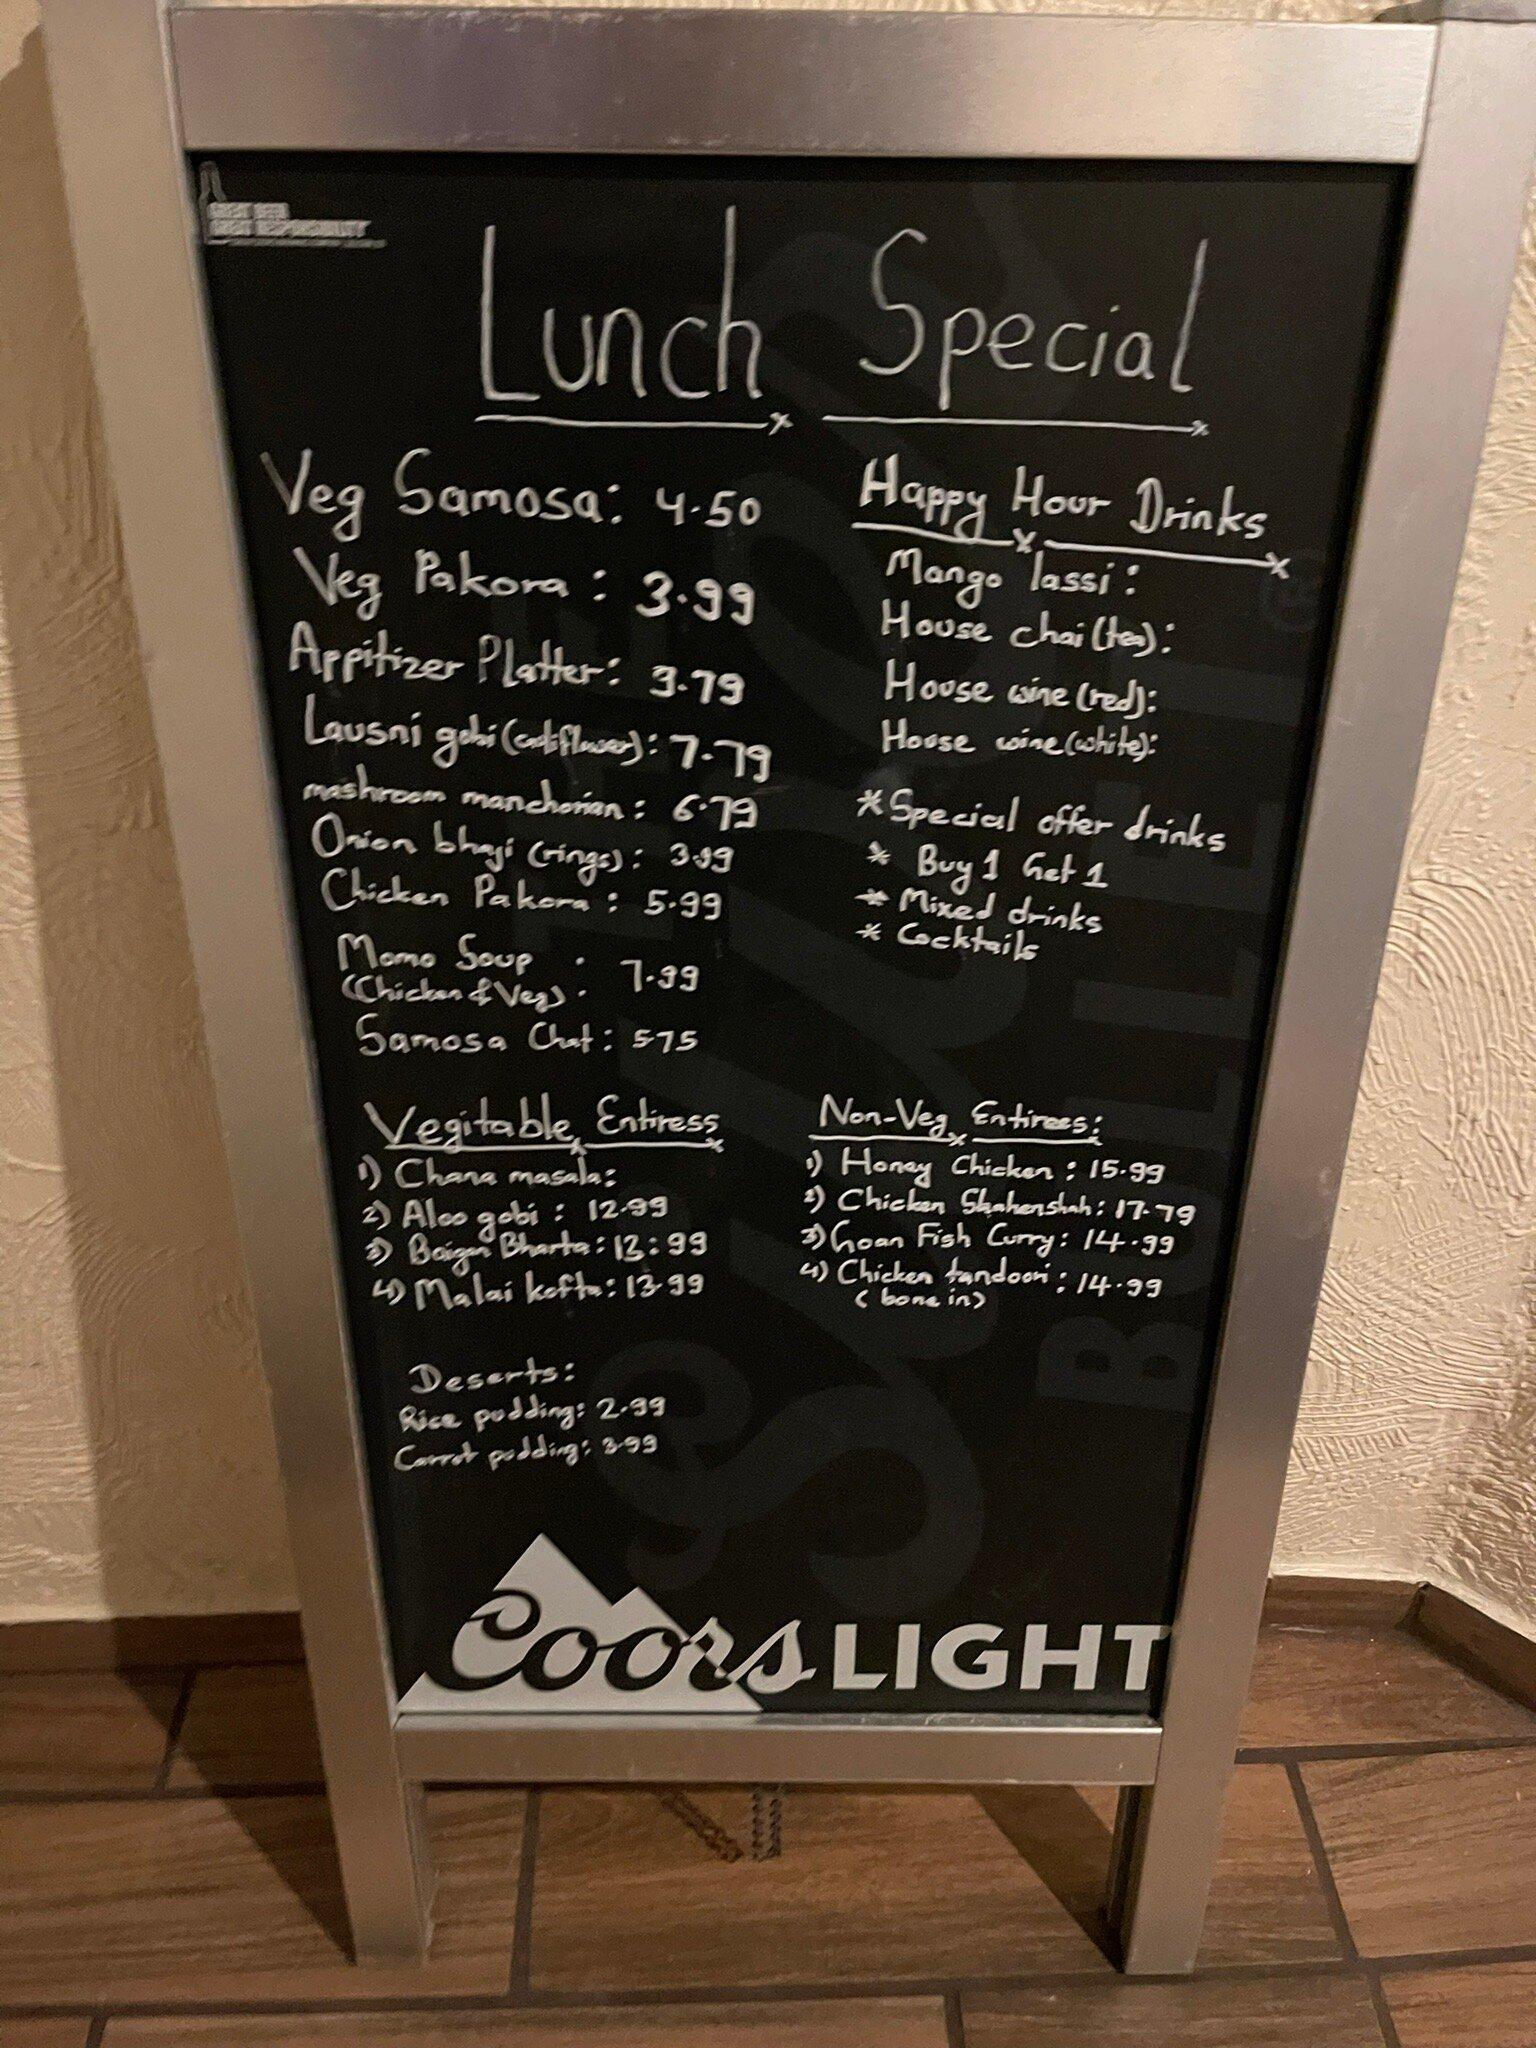 GREAT BEER
GREAT RESPONSIBILITY
Lunch Special
Veg Samosa: 4.50
Veg Pakora: 3.99
Appitizer Platter: 3.79
Lausni gobi (califlower): 7.79
mashroom manchorian: 6.79
Onion bhaji (rings): 3.99
Chicken Pakora: 5.99
Momo Soup : 7.99
(Chicken & Veg)
Samosa Chat: 5.75
Happy Hour Drinks
Mango lassi:
House chai (tea):
House wine (red):
House wine (white):
*Special offer drinks
* Buy 1 Get 1
* Mixed drinks
* Cocktails
Vegitable Entiress
1) Chana masala:
2) Aloo gobi: 12.99
3) Baigan Bharta: 13:99
4) Malai kofta: 13.99
Non-Veg Entirees:
1) Honey Chicken: 15.99
2) Chicken Shahenshah: 17.79
3) Goan Fish Curry: 14.99
4) Chicken tandoori: 14.99
(bone in)
Deserts:
Rice pudding: 2.99
Carrot pudding: 3.99
Coors LIGHT